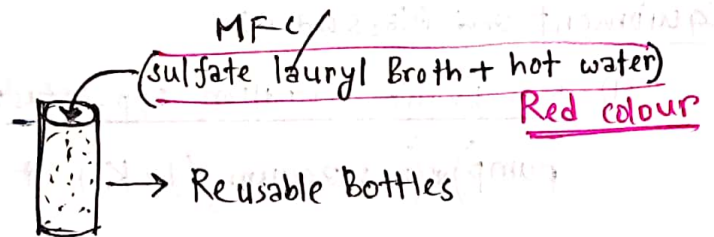 MFC/
(sulfate lauryl Broth + hot water)
Red colour
→ Reusable Bottles